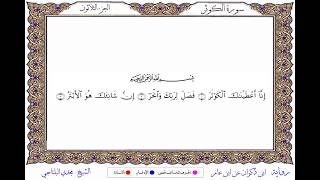 سورة الكوثر
الجزء الثلاثون
بسم الله الرحمن الرحيم
إِنَّا أَعْطَيْنَاكَ الْكَوْثَرَ ۝ فَصَلِّ لِرَبِّكَ وَانْحَرْ ۝ إِنَّ شَانِئَكَ هُوَ الْأَبْتَرُ ۝
رواية ابن ذكوان عن ابن عامر
الإدغام
الإمالة
الشيخ